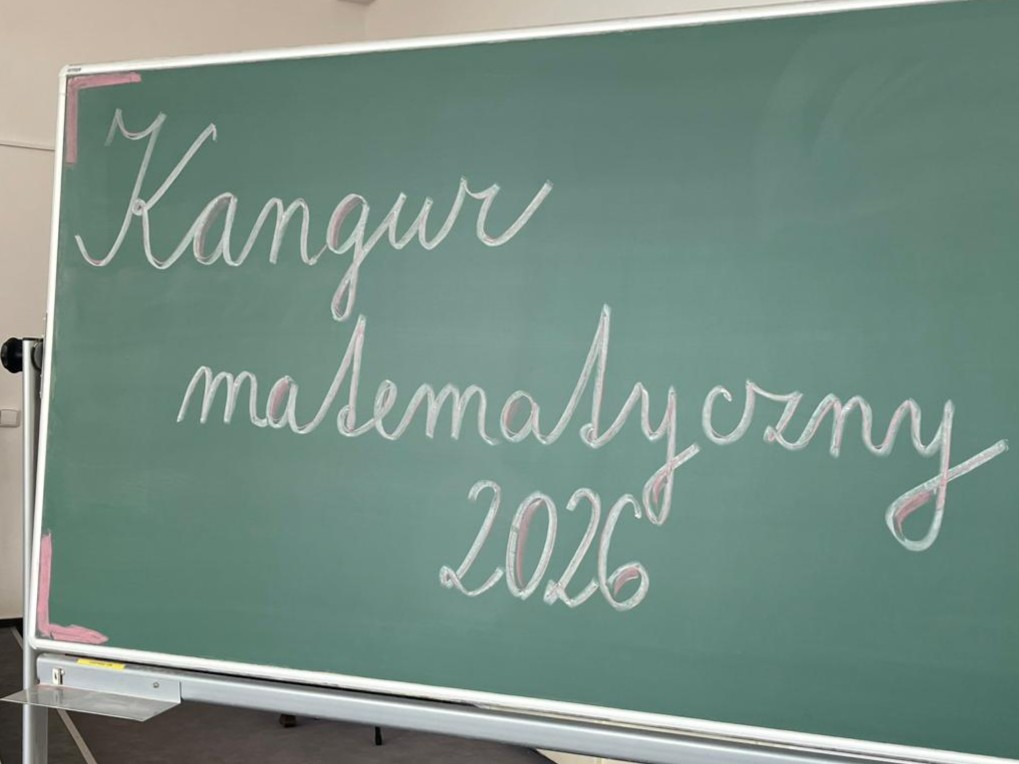 Kangur
matematyczny
2026